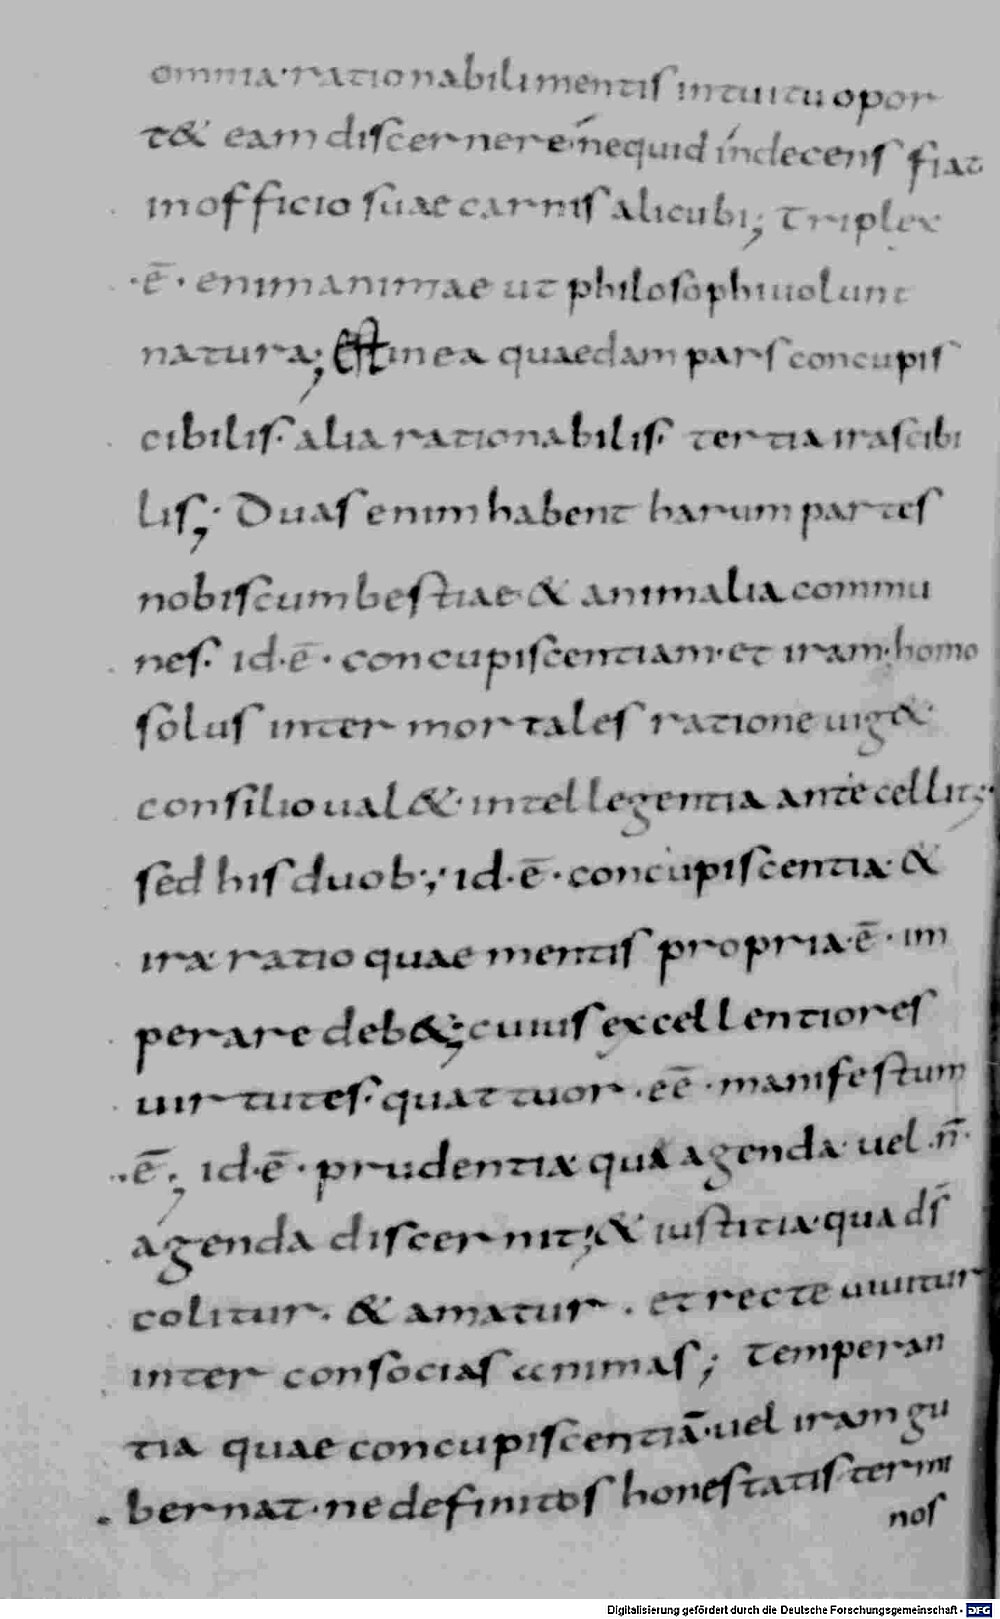 omnia·rationabili mentis intuitu opor
t& eam discernere·ne quid indecens fiat
in officio suae carnis alicubi; Triplex
·ē· enim animae ut philosophi uolunt
natura; Est in ea quaedam pars concupis
cibilis· alia rationabilis· tertia irascibi
lis; Duas enim habent harum partes
nobiscum bestiae & animalia commu
nes· id·ē· concupiscentiam·et iram·homo
solus inter mortales ratione uig&·
consilio ual&·intellegentia antecellit;
sed his duob:; id·ē· concupiscentiæ·&
iræ·ratio quae mentis propria·ē·im
perare deb&; cuius excellentiores
uirtutes·quattuor·eē·manifestum
·ē; id·ē· prudentiæ qua agenda·uel·ñ·
agenda discernit; & iustitia·qua d̄s
colitur·& amatur·et recte uiuitur
inter consocias animas; Temperan
tia quae concupiscentiā·uel iram gu
bernat·ne definitos honestatis termi
nos
Digitalisierung gefördert durch die Deutsche Forschungsgemeinschaft - DFG